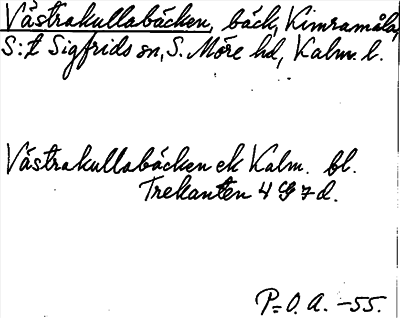 Västrakullabäcken, bäck, Kimramåla,
S:t Sigfrids sn, S. Möre hd, Kalm. l.
Västrakullabäcken ek Kalm. bl.
Trekanten 4 G 7 d.
P.O.A. -55.